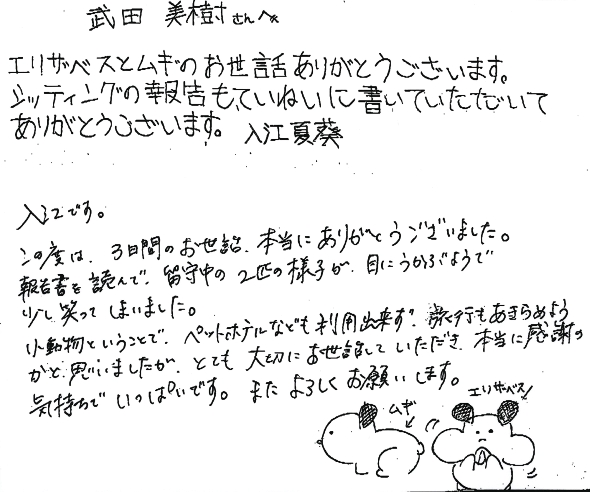 武田 美樹さんへ
エリザベスとムギのお世話ありがとうございます。
シッティングの報告もていねいに書いていただいて
ありがとうございます。 入江夏葵
入江です。
この度は、3日間のお世話、本当にありがとうございました。
報告書を読んで、留守中の2匹の様子が、目にうかぶようで
少し笑ってしまいました。
小動物ということで、ペットホテルなども利用出来ず、旅行もあきらめよう
かと思いましたが、とても大切にお世話していただき、本当に感謝の
気持ちでいっぱいです。またよろしくお願いします。
ムギ
エリザベス